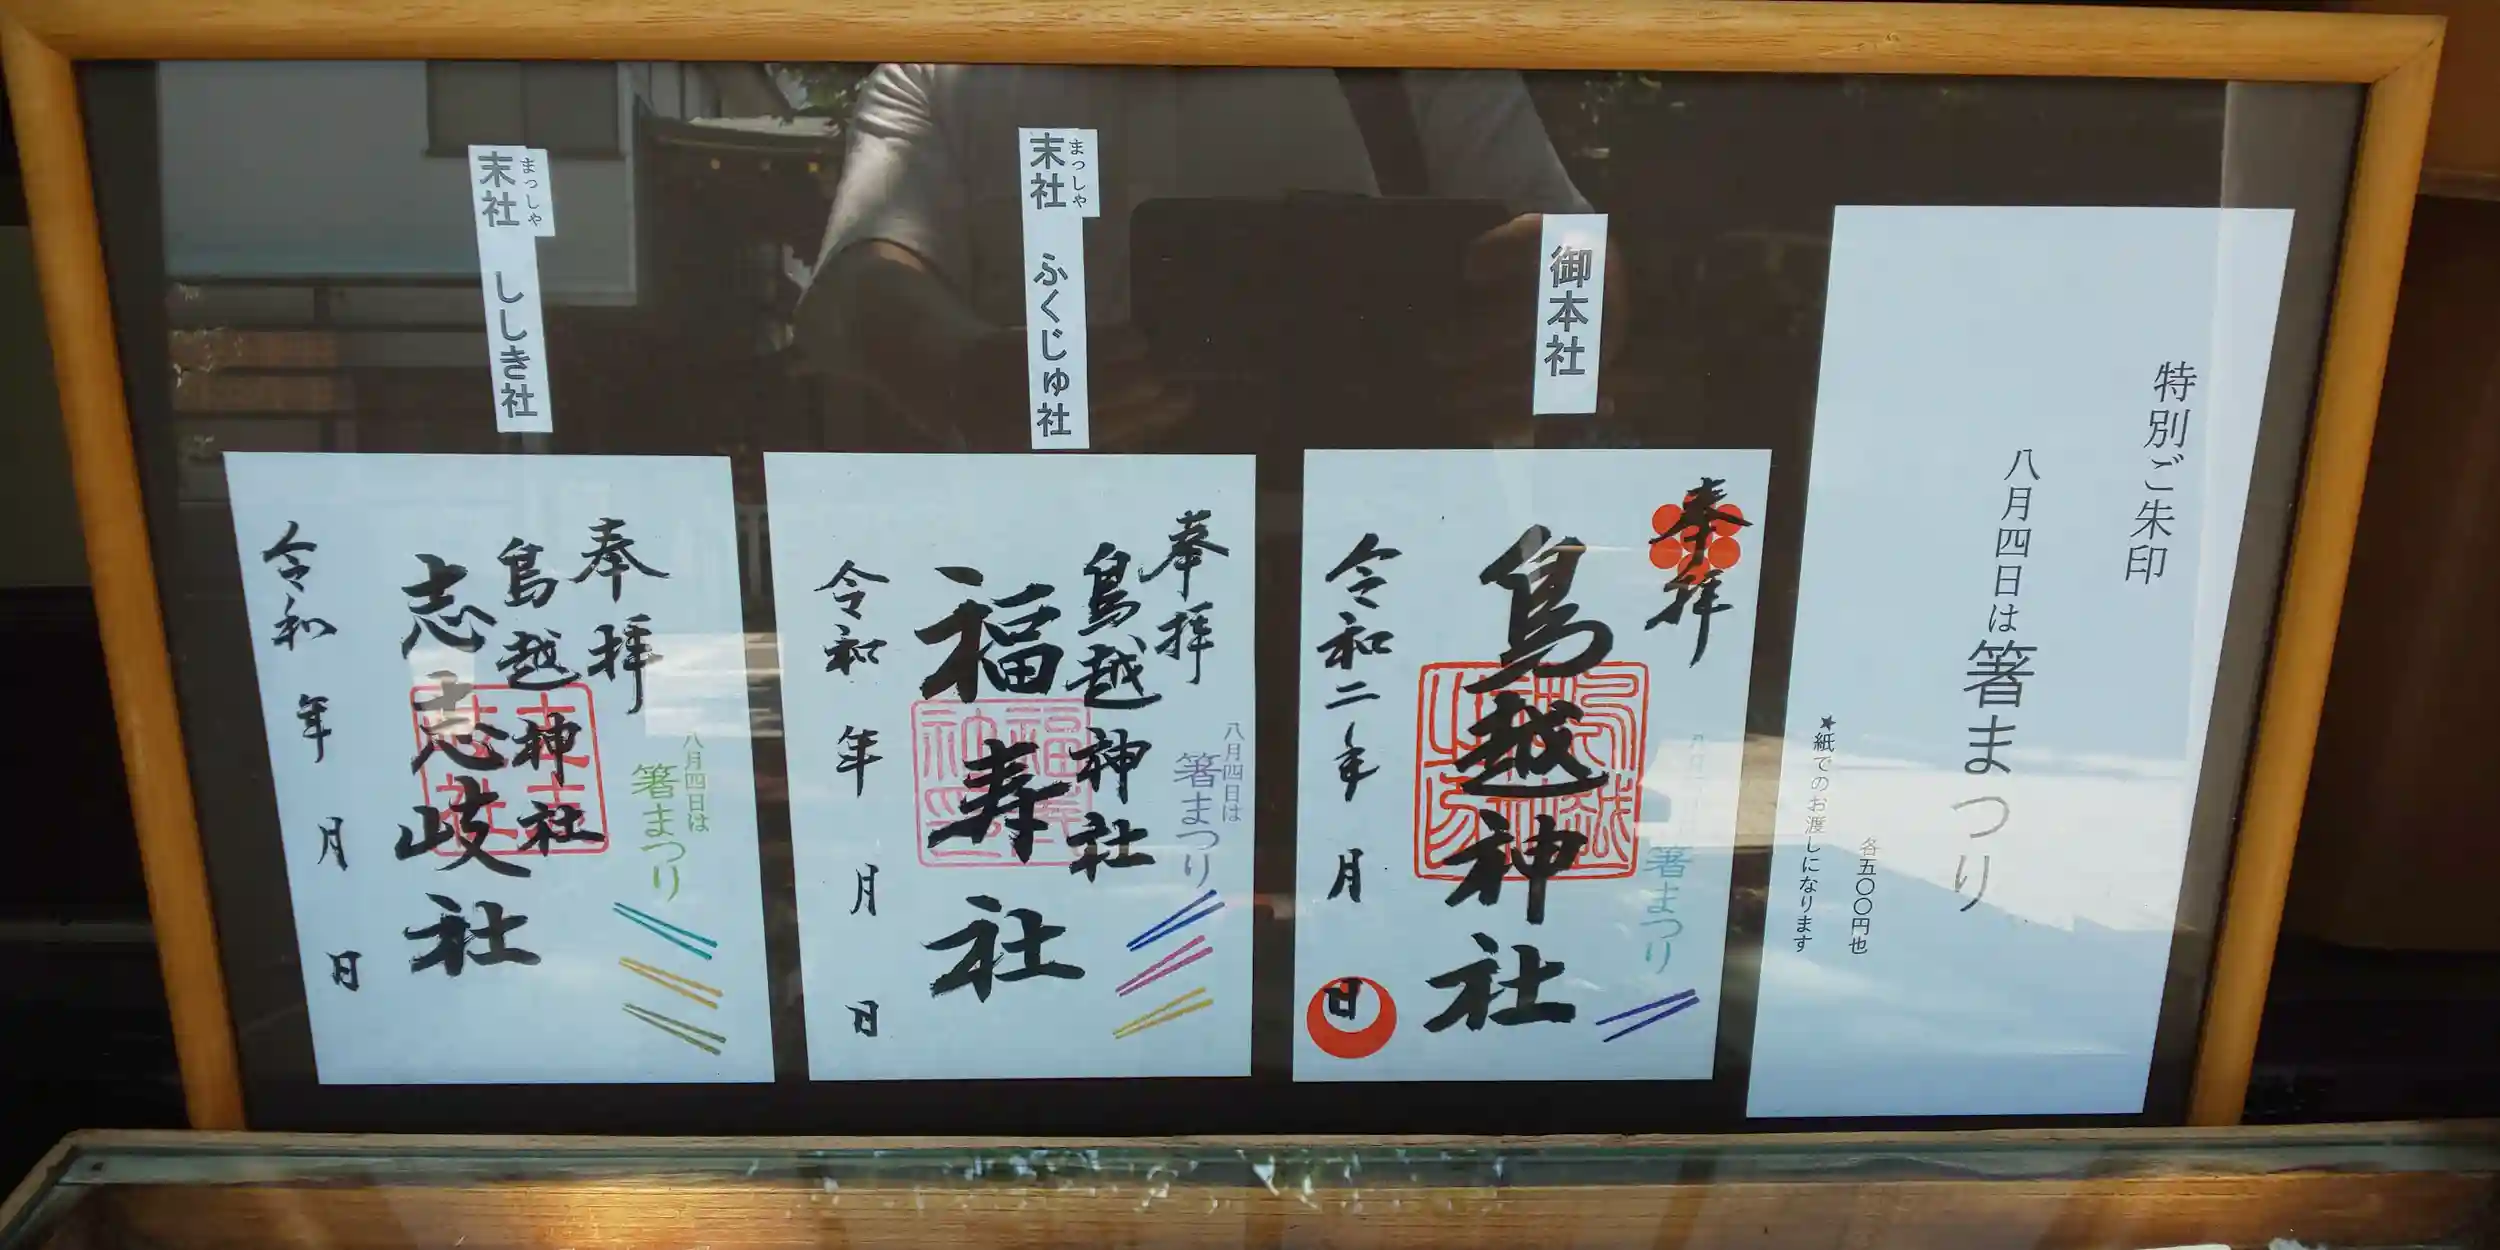 特別ご朱印
八月四日は箸まつり
各五〇〇円也
★紙でのお渡しになります
御本社
奉拝
鳥越神社
箸まつり
令和二年 月 日
まっしゃ
末社 ふくじゅ社
奉拝
八月四日は
箸まつり
鳥越神社
福寿社
令和 年 月 日
まっしゃ
末社 ししき社
奉拝
八月四日は
箸まつり
鳥越神社
志志岐社
令和 年 月 日